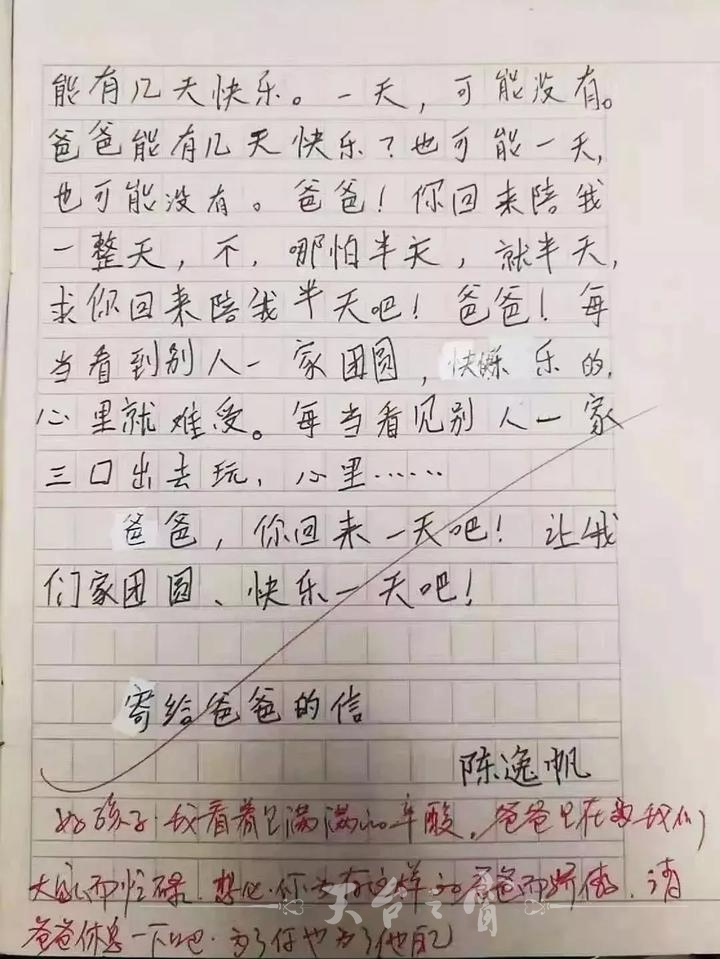 能有几天快乐。一天，可能没有。
爸爸能有几天快乐？也可能一天，
也可能没有。爸爸！你回来陪我
一整天，不，哪怕半天，就半天，
求你回来陪我半天吧！爸爸！每
当看到别人一家团圆，快乐的，
心里就难受。每当看见别人一家
三口出去玩，心里……
爸爸，你回来一天吧！让我
们家团圆、快乐一天吧！
寄给爸爸的信
陈逸帆
好孩子，我看着已满满的辛酸，爸爸是在为我们
大家而忙碌，想他，你为有这样的爸爸而骄傲，请
爸爸休息一下吧，为了你也为了他自己
天台之窗